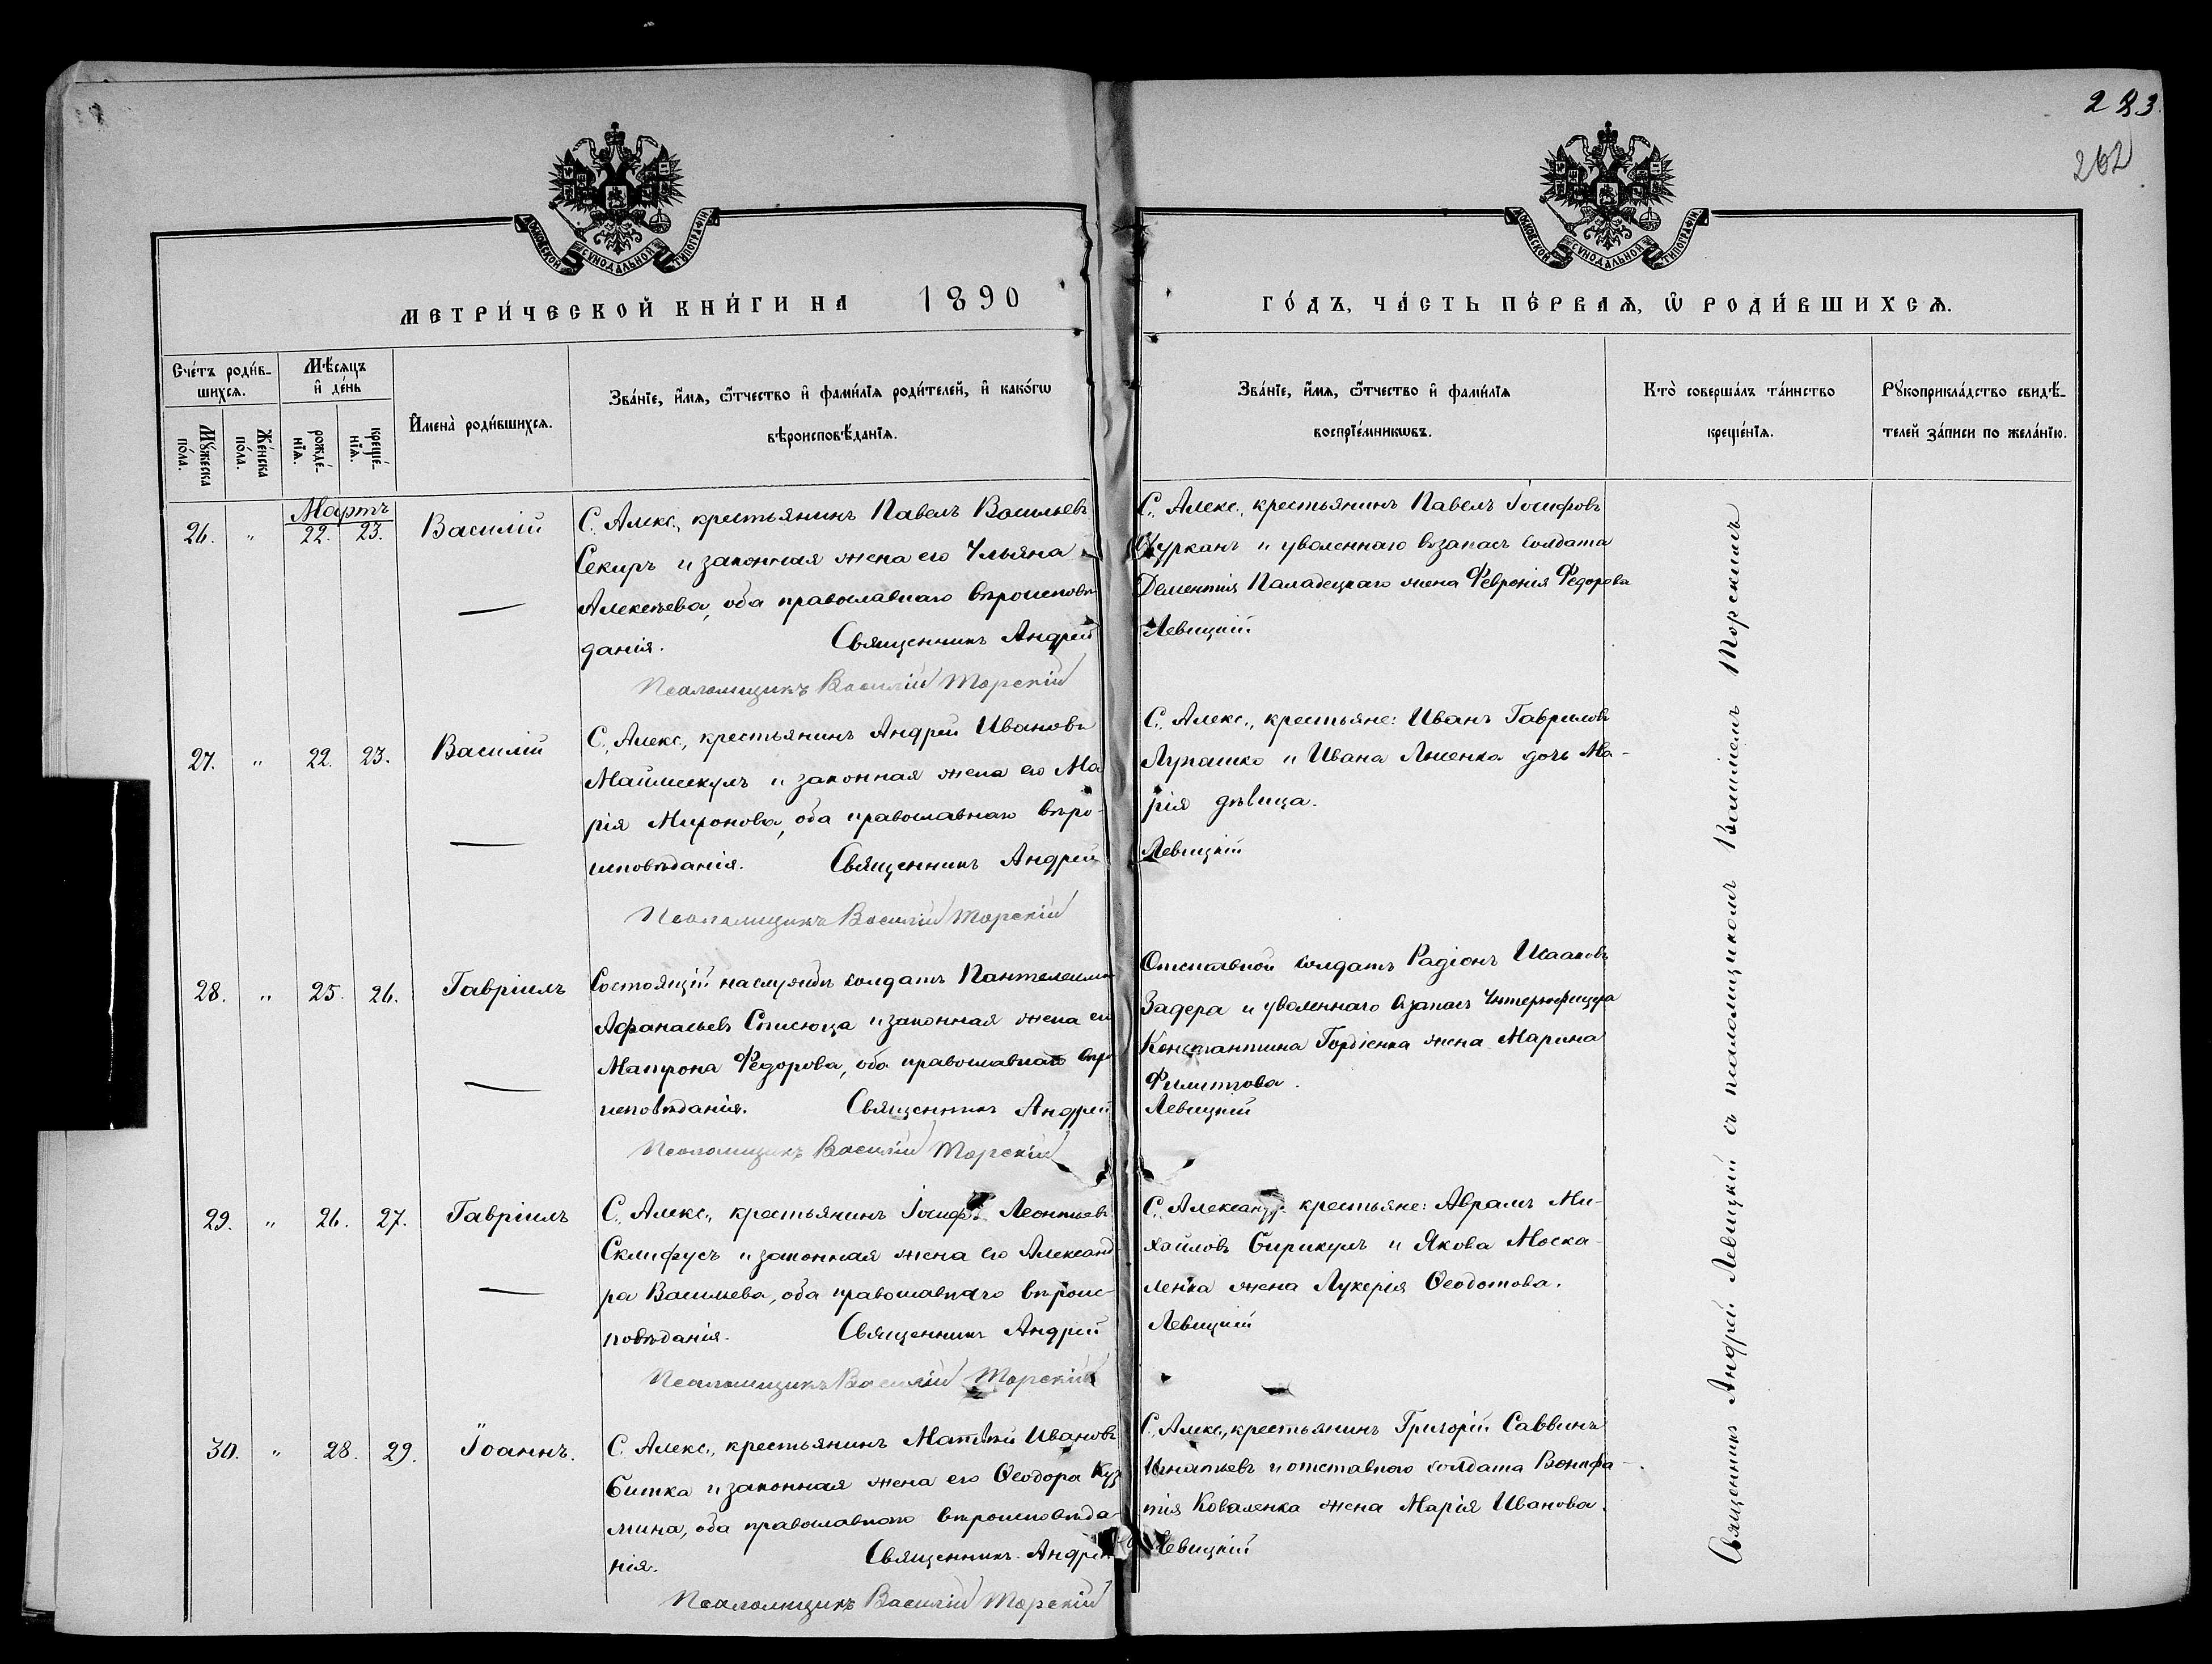 283.
262
МОСКОВСКОЙ СѴНОДАЛЬНОЙ ТИПОГРАФІИ
МОСКОВСКОЙ СѴНОДАЛЬНОЙ ТИПОГРАФІИ
МЕТРИ́ЧЕСКОЙ КНИ́ГИ НА 1890
ГО́ДЪ, ЧА́СТЬ ПЕ́РВАѦ, Ѡ҆ РОДИ́ВШИХСѦ.
Сче́тъ роди́в-
шихсѧ.
Мꙋ́жеска по́ла.
Же́нска по́ла.
Мѣ́сяцъ и҆ де́нь
рожде́-нїѧ.
креще́-нїѧ.
И҆мена̀ роди́вшихсѧ.
Зва́нїе, и҆́мѧ, ѻ҆́тчество и҆ фами́лїѧ роди́телей, и҆ како́гѡ
вѣроисповѣ́данїѧ.
Зва́нїе, и҆́мѧ, ѻ҆́тчество и҆ фами́лїѧ
воспрїе́мникѡвъ.
Кто̀ соверша́лъ та́инство
креще́нїѧ.
Рꙋкоприкла́дство свидѣ́-
телей за́писи по жела́нїю.
Мартъ
26. " 22. 23. Василій
С. Алекс., крестьянинъ Павелъ Васильевъ
Секиръ и законная жена его Ульяна
Алексѣева, оба православнаго вѣроисповѣ
данія. Священникъ Андрей
Псаломщикъ Василій Торскій
С. Алекс., крестьянинъ Павелъ Іосифовъ
Цурканъ и уволеннаго въ запасъ солдата
Дементія Паладецкаго жена Февронія Федорова
Левицкій
27. " 22. 23. Василій
С. Алекс., крестьянинъ Андрей Ивановъ
и законная жена его Ма
рія Миронова, оба православнаго вѣро-
исповѣданія. Священникъ Андрей
Псаломщикъ Василій Торскій
С. Алекс., крестьяне: Иванъ Гавриловъ
Лупашко и Ивана дочь Ма-
рія дѣвица.
Левицкій
28. " 25. 26. Гавріилъ
Состоящій на службѣ солдатъ Пантелеимо
Афанасьевъ и законная жена ег
Матрона Федорова, оба православнаго вѣро
исповѣданія. Священникъ Андрей
Псаломщикъ Василій Торскій
Отставной солдатъ Радіонъ Исааковъ
Задера и уволеннаго въ запасъ Унтерофицера
Константина Гордіенка жена Марина
Филиппова.
Левицкій
29. " 26. 27. Гавріилъ
С. Алекс., крестьянинъ Іосифъ Леонтьевъ
Склифусъ и законная жена его Александ
ра Васильева, оба православнаго вѣроис-
повѣданія. Священникъ Андрей
Псаломщикъ Василій Торскій
С. Александр. крестьяне: Аврамъ Ми-
хайловъ Бирикулъ и Якова Моска-
ленка жена Лукерія Ѳеодотова.
Левицкій
30. " 28. 29. Іоаннъ.
С. Алекс., крестьянинъ Матвѣй Ивановъ
Битка и законная жена его Ѳеодора Куз
мина, оба православнаго вѣроисповѣда-
нія. Священникъ Андрей
Псаломщикъ Василій Торскій
С. Алекс., крестьянинъ Григорій Саввинъ
Игнатьевъ и отставного солдата Вонифа-
тія Коваленка жена Марія Иванова.
Левицкій
Священникъ Андрей Левицкій съ псаломщикомъ Василіемъ Торскимъ